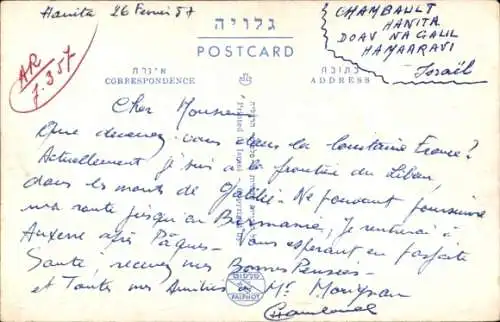 Hanita 26 Fevrier 57
גלויה
POSTCARD
אגרת
CORRESPONDENCE
כתובת
ADDRESS
CHAMBAULT
HANITA
DOAV NA GALIL
HAMAARAVI
Israël
AR
7.3.57
Cher Monsieur
Que devenez-vous dans la lointaine France?
Actuellement je suis à la frontière du Liban,
dans les monts de Galilée. Ne pouvant poursuivre
ma route jusqu'en Birmanie, je rentrerai à
Auxerre après Pâques. Vous espérant en parfaite
Santé, recevez mes Bonnes Pensées
et Toutes mes Amitiés à Mr
PALPHOT